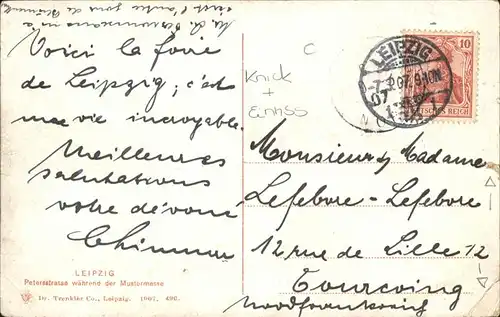 Voici la foire
de Leipzig; c'est
une vie incroyable.
Meilleures
salutations
votre dévoué
LEIPZIG
Petersstrasse während der Mustermesse
Dr. Trenkler Co., Leipzig. 1907. 490.
C
Knick
+
Einriss
LEIPZIG
07
10
DEUTSCHES REICH
Monsieur Madame
Lefebvre-Lefebvre
12 rue de Lille 12
Tourcoing
Nordfrankreich